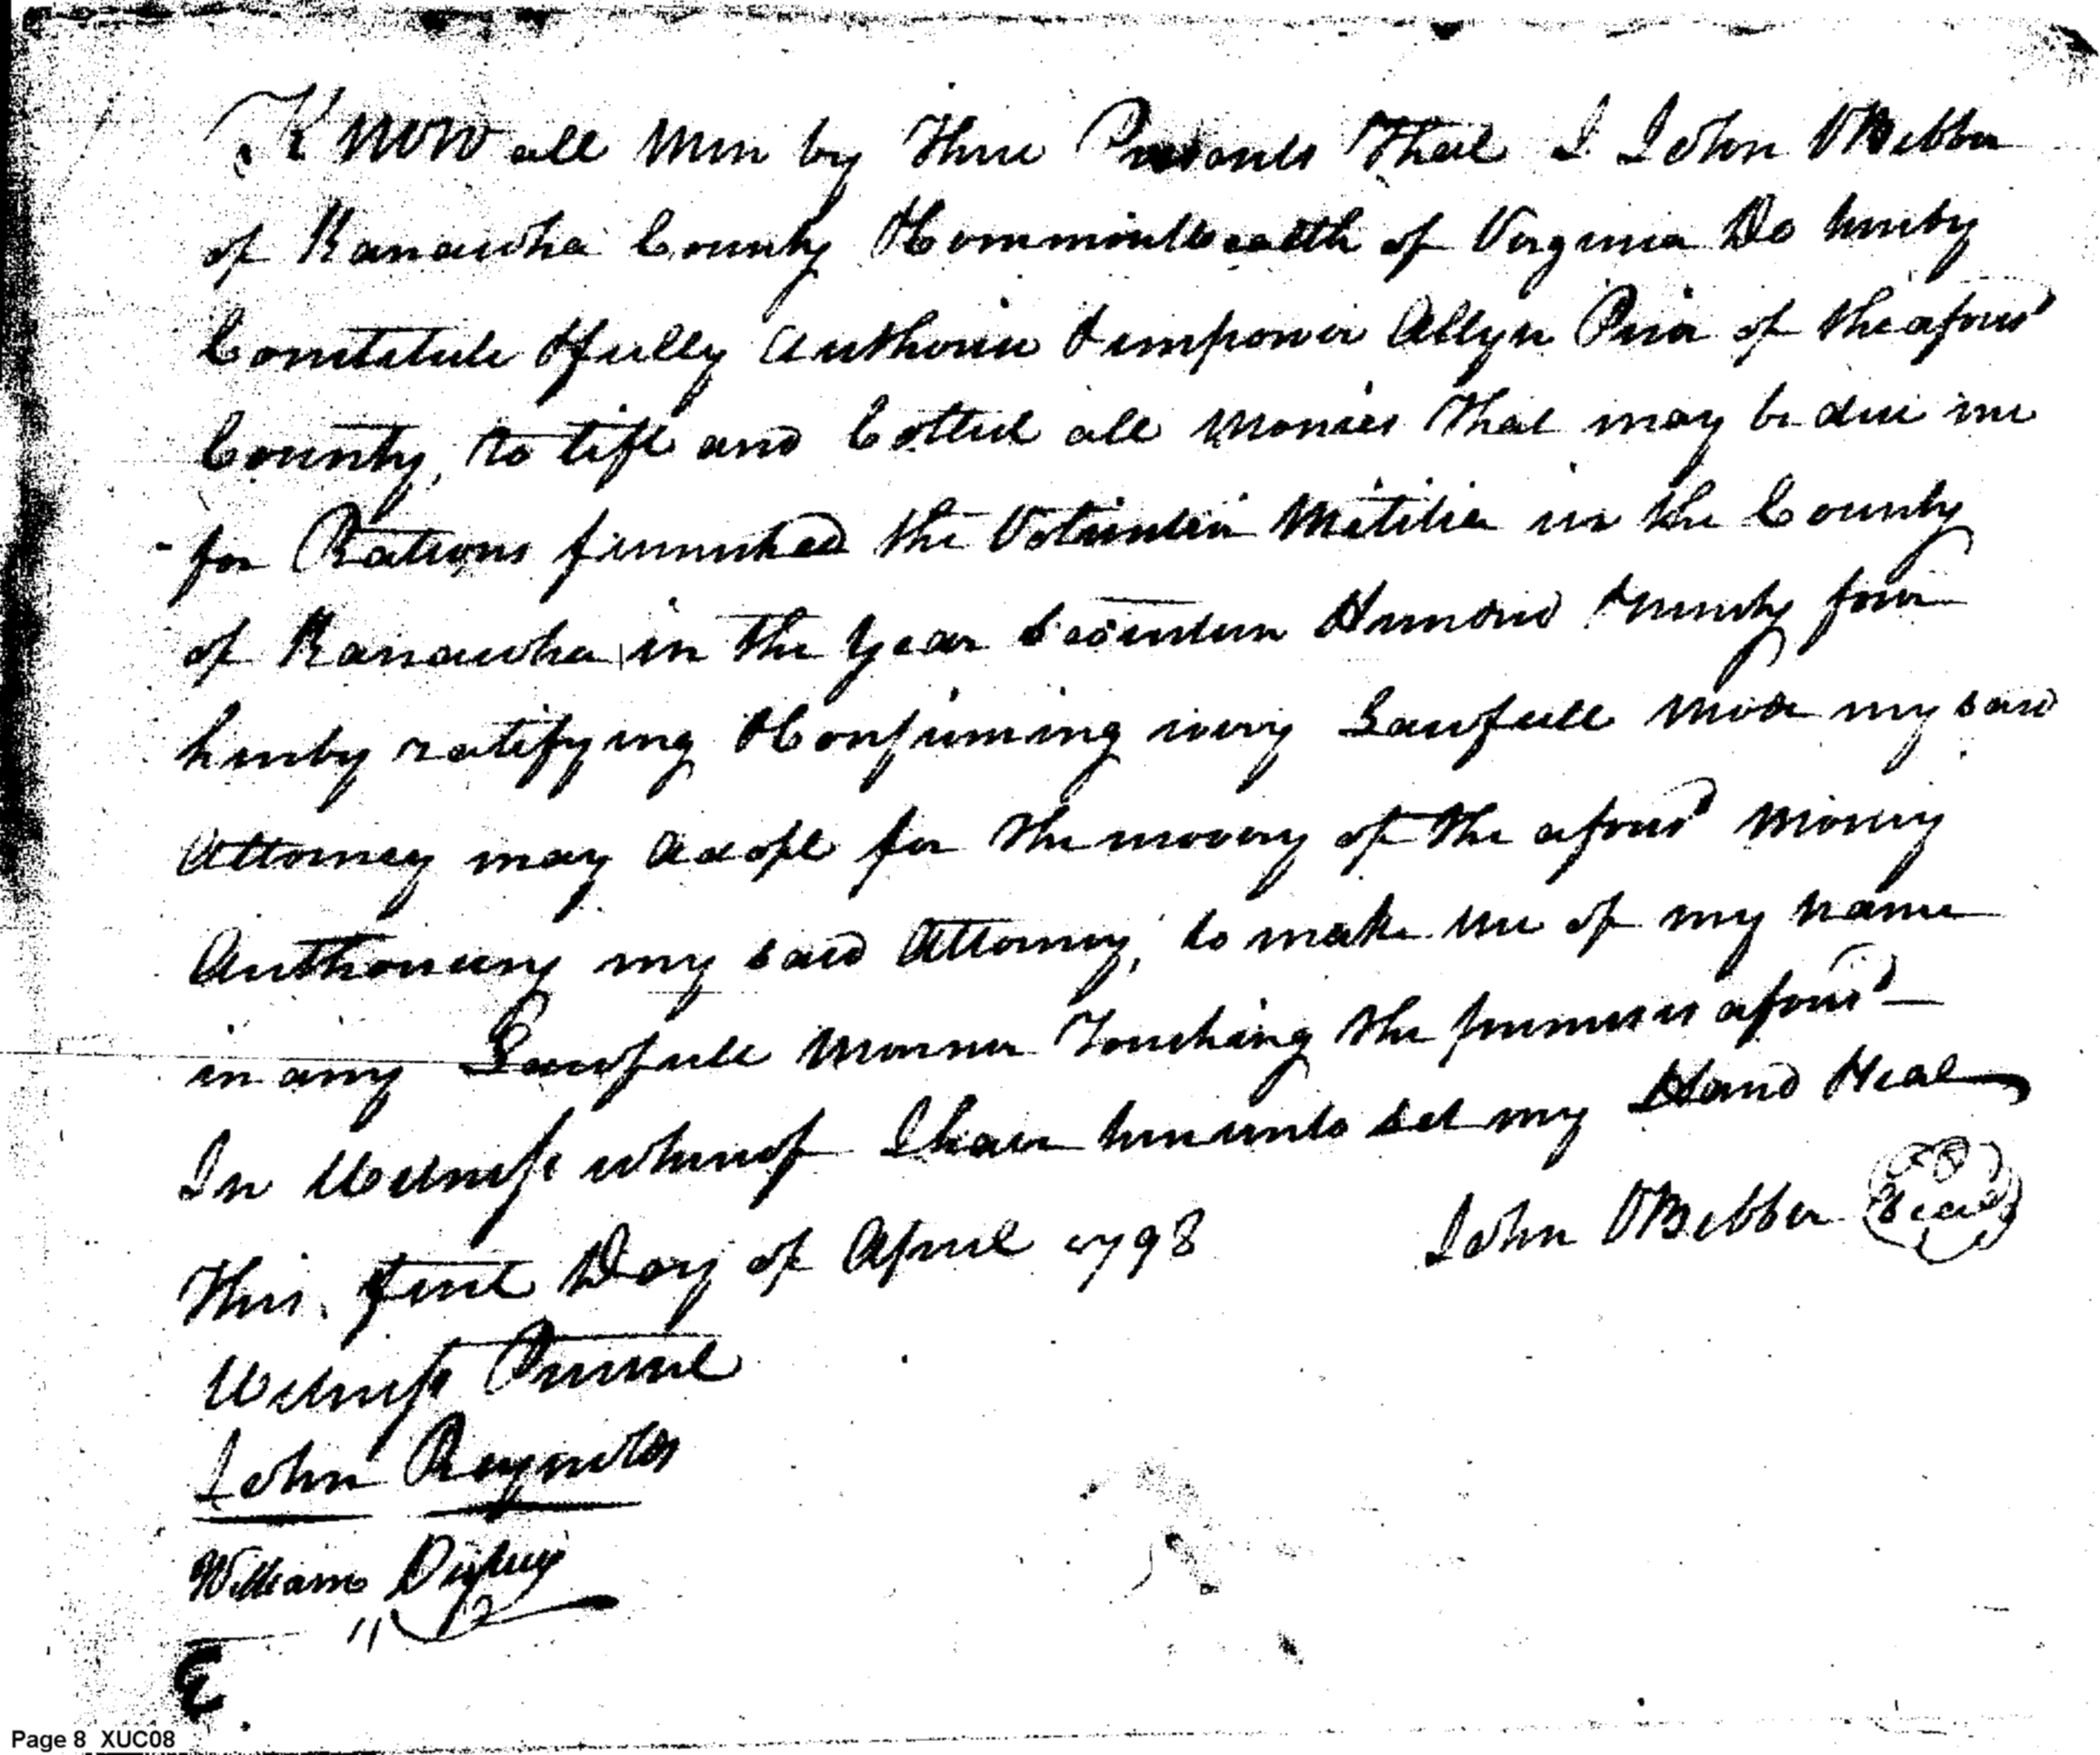 Know all Men by These Presents That I John VBibber
of Kanawha County &Commonwealth of Virginia Do hereby
Constitute &fully Authorise & impower Allyn Prior of the afores^d
County, to lift and Collect all Monies That may be due me
for Rations furnished the Volunteer Militia in the County
of Kanawha in the Year Seventeen Hundred & ninety four
hereby ratifying &Confirming every Lawfull Mode my said
Attorney may adopt for the recovery of the afores^d Money
Authorising my said Attorney, to make use of my name
in any Lawfull Manner Touching the premises afores^d
In Witness whereof I have hereunto set my Hand &Seal
This first Day of April 1798 John VBibber Seal
Witness Present
John Reynolds
William Dupuy
Page 8 XUC08